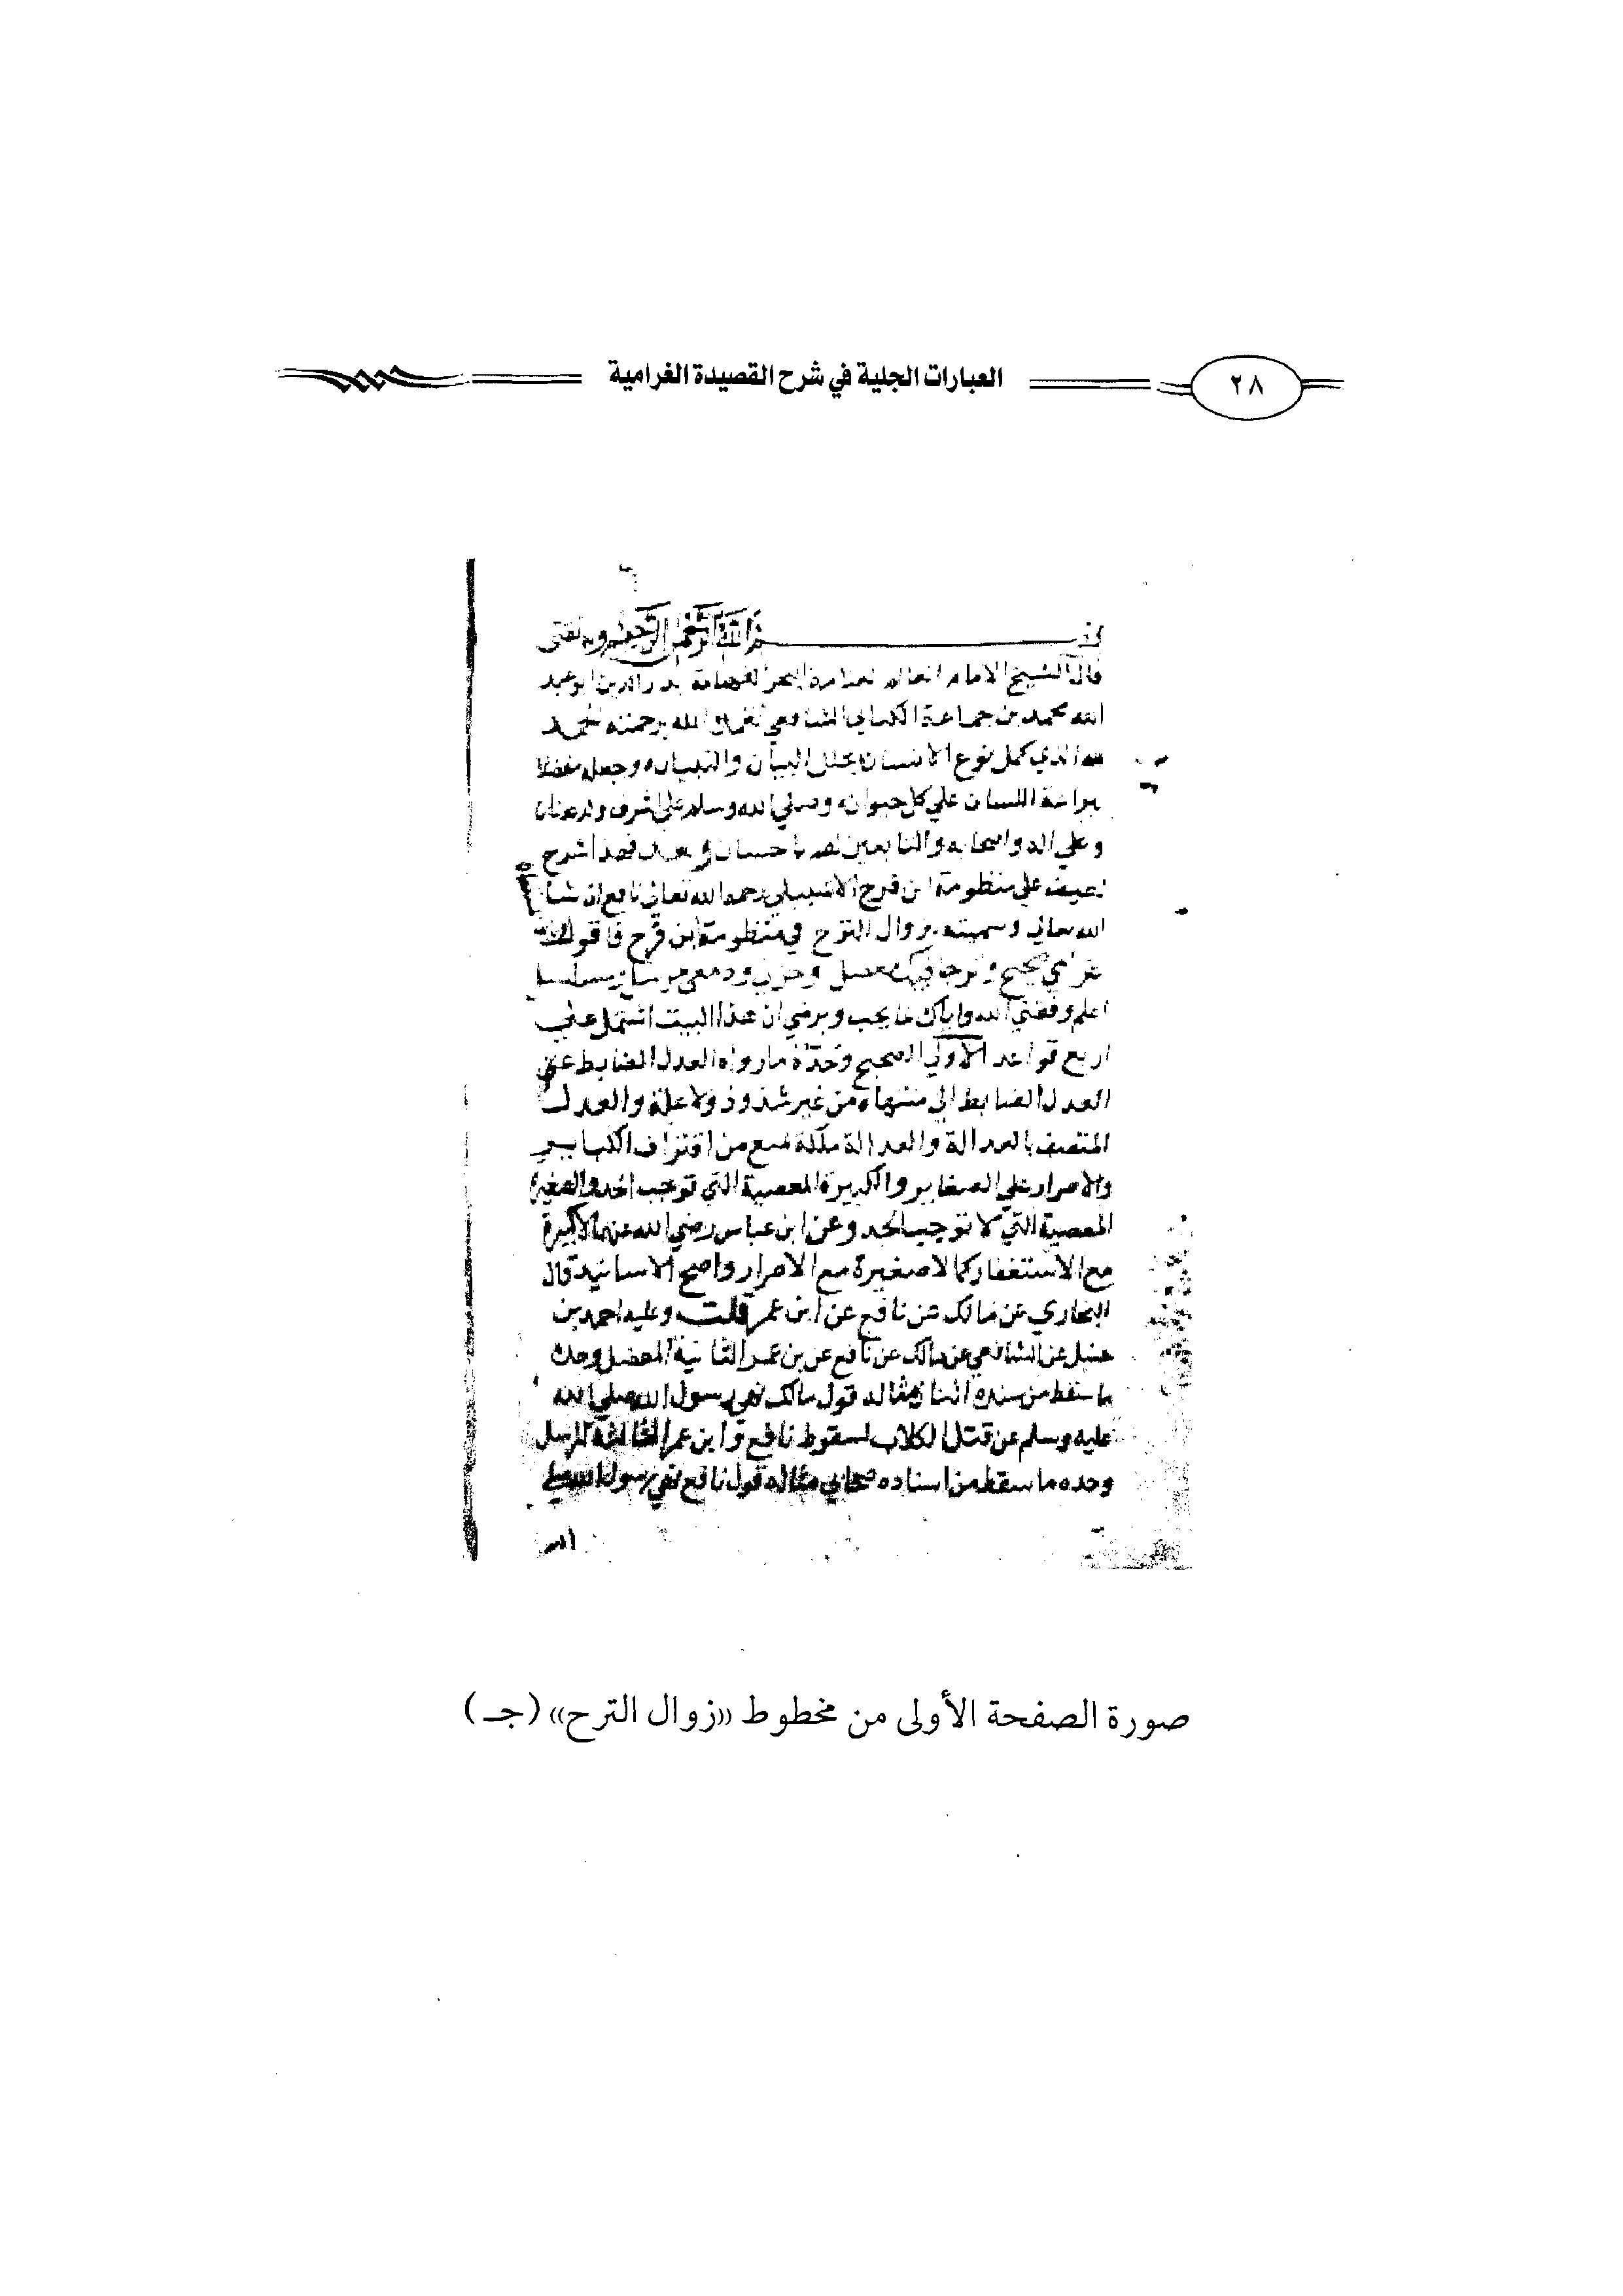 ٢٨
العبارات الجلية في شرح القصيدة الغرامية
بسم الله الرحمن الرحيم وبه ثقتي
قال الشيخ الامام العالم العلامة البحر الفهامة بدر الدين ابو عبد
الله محمد بن جماعة الكناني الشافعي تغمده الله برحمته الحمد
لله الذي كمل نوع الانسان بحلل البيان والتبيان وجعله مفضلا
ببراعة اللسان على كل حيوان وصلى الله وسلم على اشرف ولد عدنان
وعلى اله واصحابه والتابعين لهم باحسان وبعد فهذا شرح
لطيف علي منظومة ابن فرح الاشبيلي رحمه الله تعالى نافع ان شا
الله تعالي وسميته بزوال الترح في منظومة ابن فرح فاقول
غرامي صحيح والرجا فيك معضل وحزني ودمعي مرسل ومسلسل
اعلم وفقني الله واياك لما يحب ويرضي ان هذا البيت اشتمل علي
اربع قواعد الاولي الصحيح وحده مارواه العدل الضابط عن
العدل الضابط الي منتهاه من غير شذوذ ولا علة والعدل
المتصف بالعدالة والعدالة ملكة تمنع من اقتراف الكباير
والاصرار علي الصغاير والكبيرة المعصية التي توجب الحد والصغيرة
المعصية التي لا توجب الحد وعن ابن عباس رضي الله عنهما لاكبيرة
مع الاستغفار كما لا صغيرة مع الاصرار واصح الاسانيد قال
البخاري عن مالك عن نافع عن ابن عمر قلت وعليه احمد بن
حنبل عن الشافعي عن مالك عن نافع عن بن عمر الثانية المعضل وحده
ما سقط من سنده اثنان مثاله قول مالك نهى رسول الله صلي الله
عليه وسلم عن قتل الكلاب لسقوط نافع وابن عمر الثالثة المرسل
وحده ما سقط من اسناده صحابي مثاله قول نافع نهي رسول الله صلي
صورة الصفحة الأولى من مخطوط «زوال الترح» (جـ)